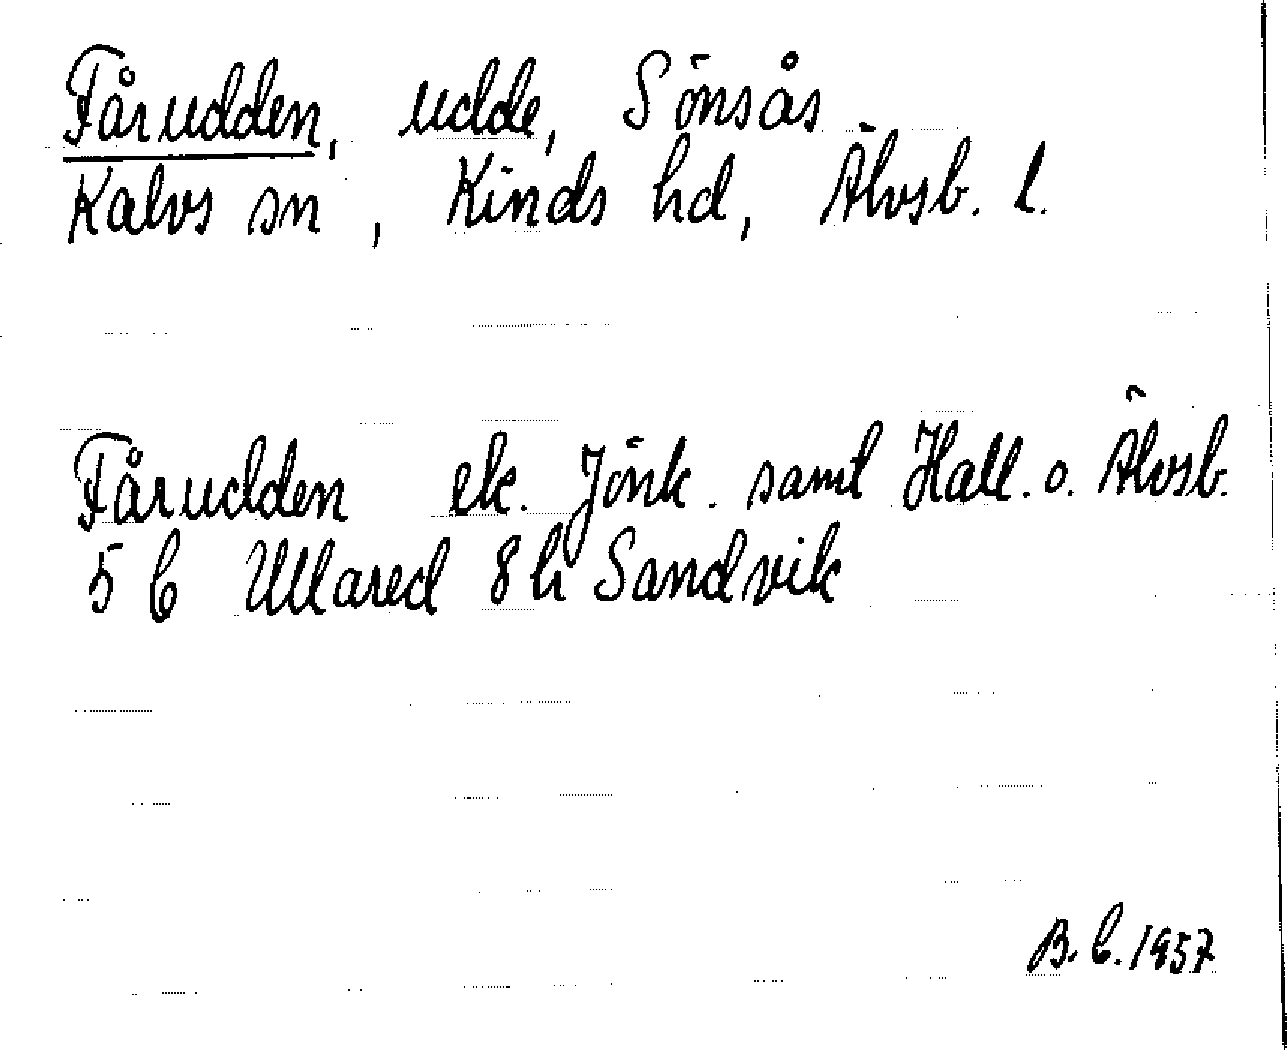 Fårudden, udde, Sönsås
Kalvs sn, Kinds hd, Älvsb. l.
Fårudden ek. Jönk. samt Hall. o. Älvsb.
5 C Ullared 8 h Sandvik
B. C. 1957